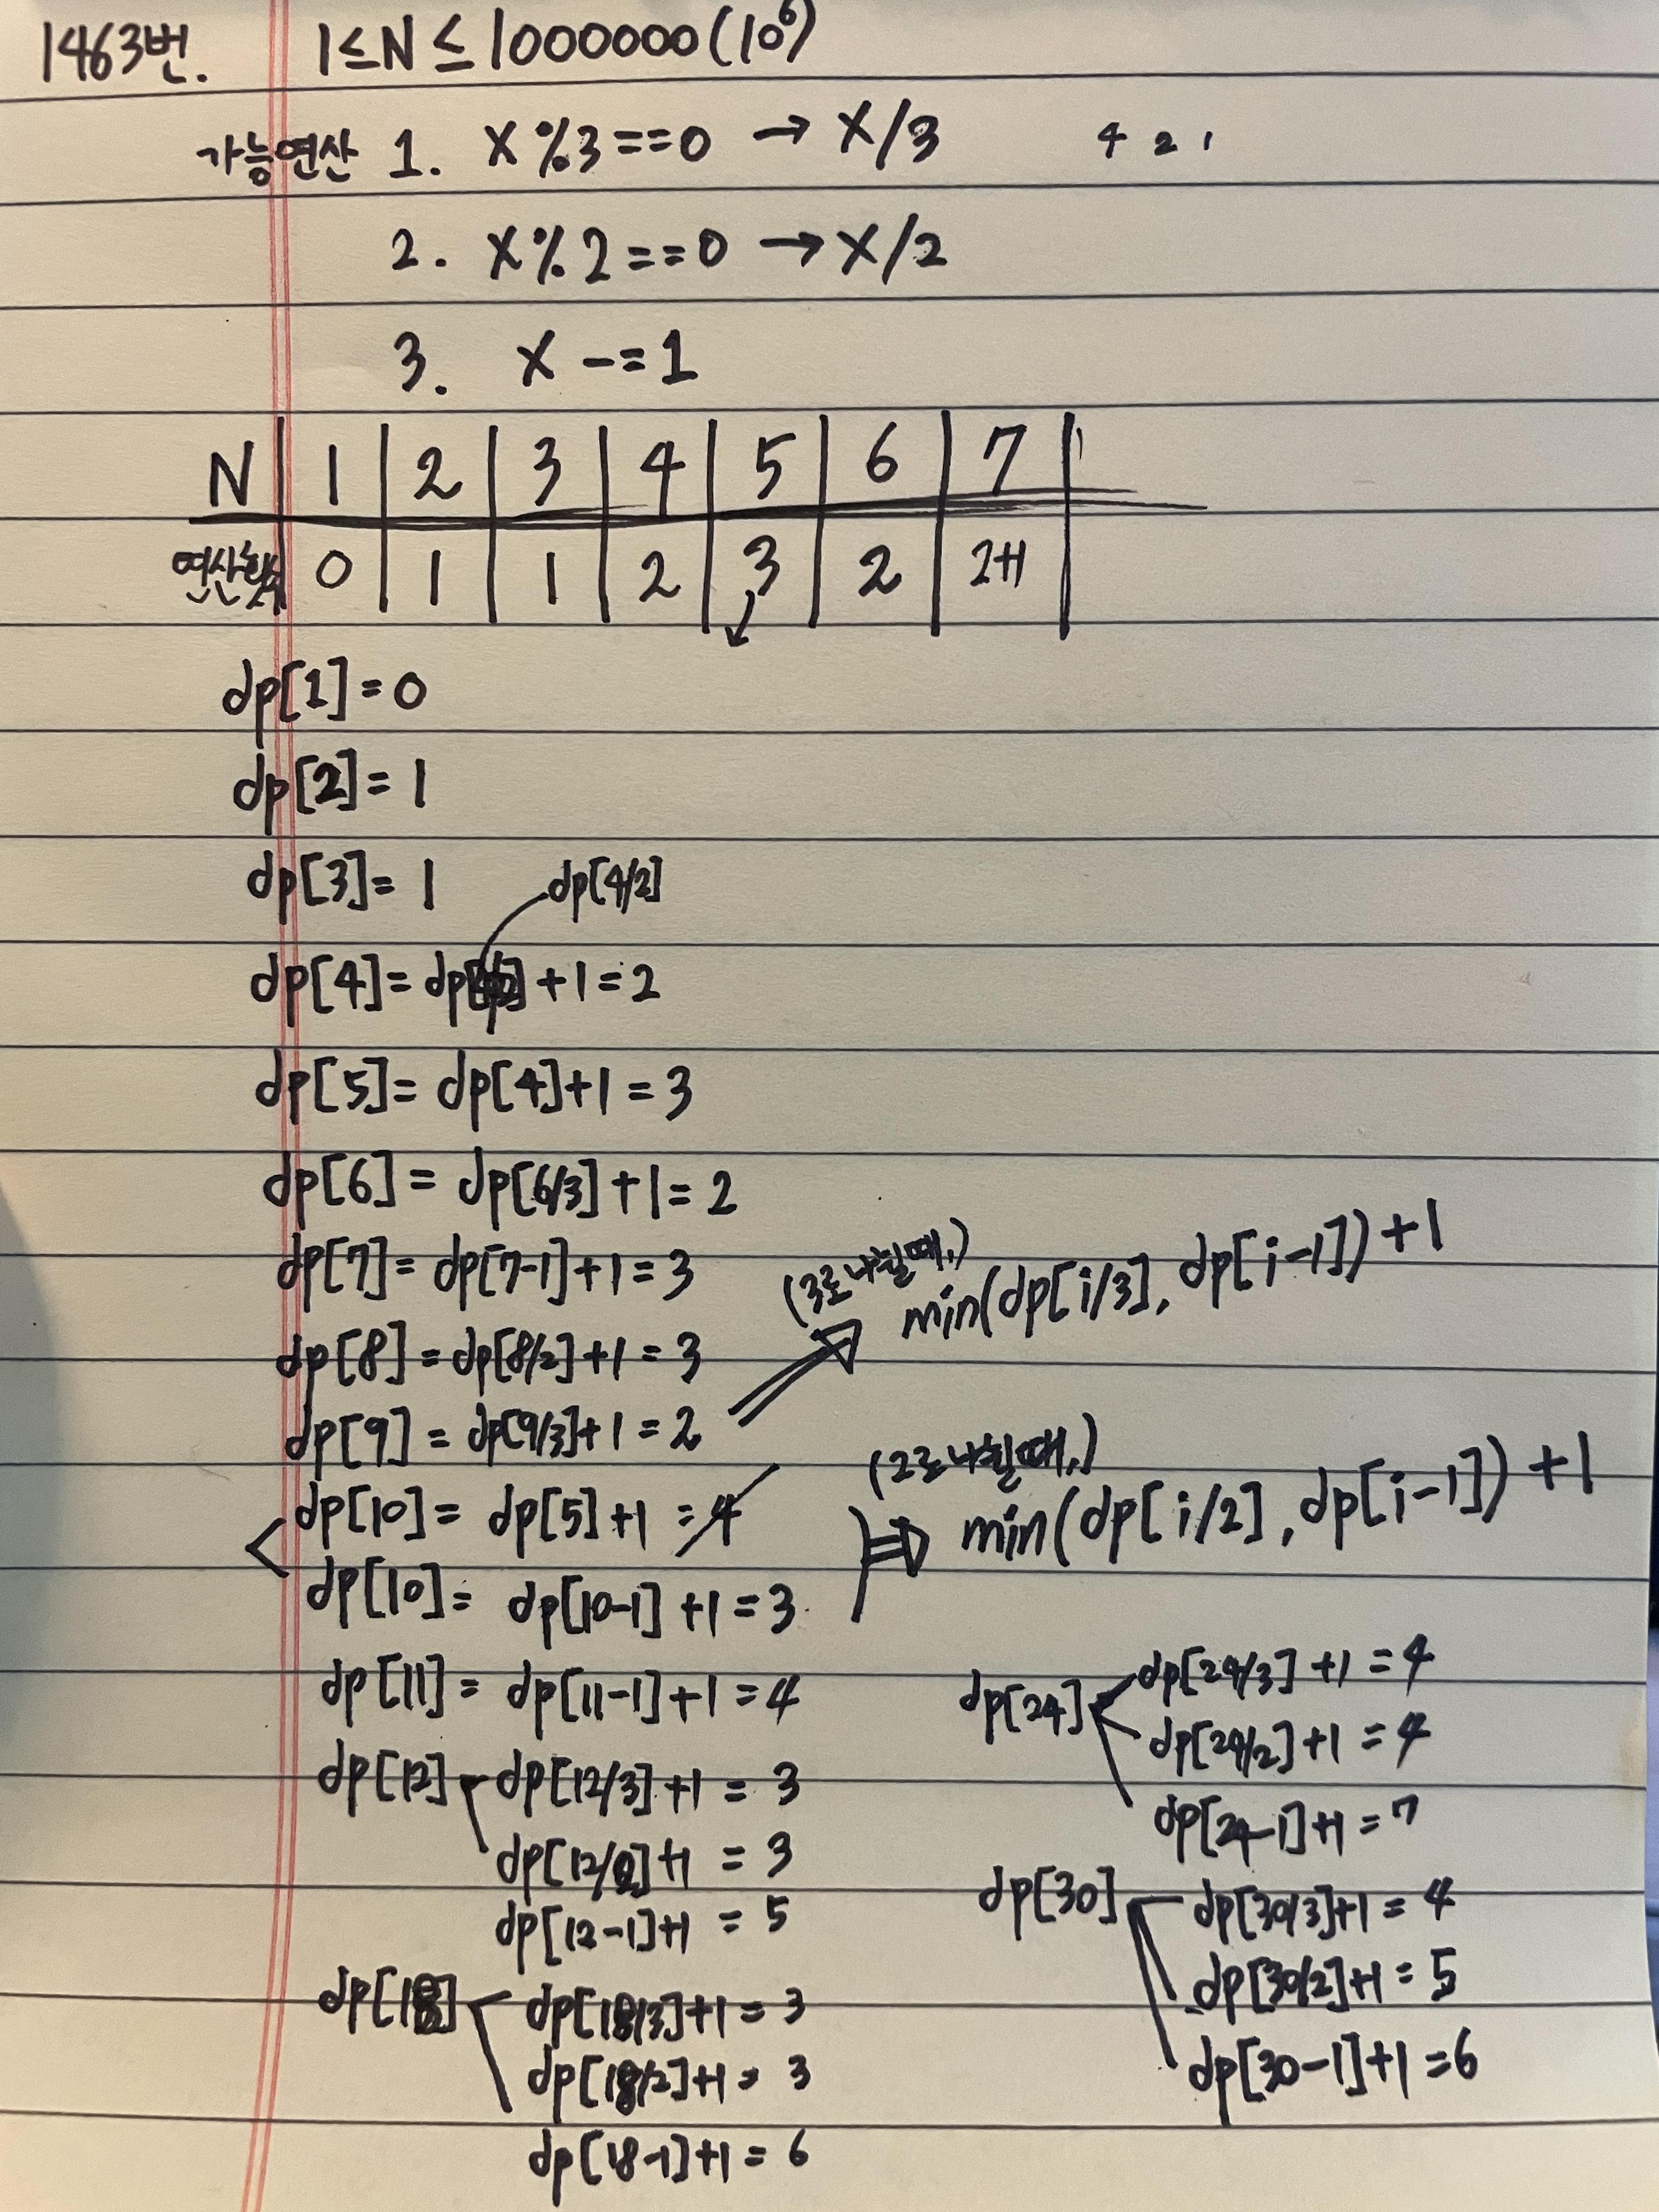 1463번. 1≤N≤1000000(10⁶)
가능연산 1. X%3==0 → X/3 4 2 1
2. X%2==0 → X/2
3. X-=1
N 1 2 3 4 5 6 7
연산횟수 0 1 1 2 3 2 2+1
dp[1]=0
dp[2]=1
dp[3]=1
dp[4/2]
dp[4]=dp[ ]+1=2
dp[5]=dp[4]+1=3
dp[6]=dp[6/3]+1=2
dp[7]=dp[7-1]+1=3
(3로 나뉠때,)
min(dp[i/3], dp[i-1])+1
dp[8]=dp[8/2]+1=3
dp[9]=dp[9/3]+1=2
(2로 나뉠때,)
dp[10]=dp[5]+1=4
min(dp[i/2], dp[i-1])+1
dp[10]=dp[10-1]+1=3
dp[11]=dp[11-1]+1=4
dp[12] dp[12/3]+1=3
dp[12/2]+1=3
dp[12-1]+1=5
dp[18] dp[18/3]+1=3
dp[18/2]+1=3
dp[18-1]+1=6
dp[24] dp[24/3]+1=4
dp[24/2]+1=4
dp[24-1]+1=7
dp[30] dp[30/3]+1=4
dp[30/2]+1=5
dp[30-1]+1=6